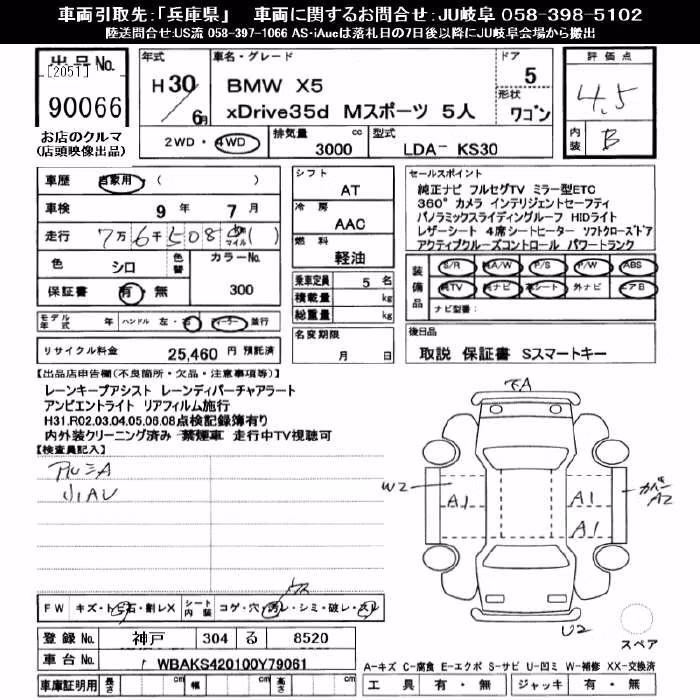 車両引取先:「兵庫県」 車両に関するお問合せ:JU岐阜 058-398-5102
陸送問合せ:US流 058-397-1066 AS-iAucは落札日の7日後以降にJU岐阜会場から搬出
出品No. [2051]
90066
お店のクルマ
(店頭映像出品)
年式 H30/6月
車名・グレード BMW X5
xDrive35d Mスポーツ 5人
ドア 5
形状 ワゴン
評価点 4.5
内装 B
2WD・4WD 排気量 3000 cc 型式 LDA- KS30
車歴 自家用 ( )
車検 9年 7月
走行 7万6千508 マイル ( )
色 シロ 色替 カラーNo. 300
保証書 有・無
シフト AT
冷房 AAC
燃料 軽油
乗車定員 5名
積載量 kg
総重量 kg
名変期限 月 日
セールスポイント
純正ナビ フルセグTV ミラー型ETC
360° カメラ インテリジェントセーフティ
パノラミックスライディングルーフ HIDライト
レザーシート 4席シートヒーター ソフトクローズドア
アクティブクルーズコントロール パワートランク
装備品 S/R AW P/S P/W ABS
TV ナビ 革シート 外ナビ エアB
ナビ型番( )
モデル年式 年 ハンドル 左・右 ディーラー 並行
リサイクル料金 25,460 円 預託済
後日品
取説 保証書 Sスマートキー
【出品店申告欄(不良箇所・欠品・注意事項等)】
レーンキープアシスト レーンディパーチャアラート
アンビエントライト リアフィルム施行
H31.R02.03.04.05.06.08点検記録簿有り
内外装クリーニング済み 禁煙車 走行中TV視聴可
【検査員記入】
アルミA
小AU
下A
W2
A1
A1
A1
カバーA2
U2
スペア
FW キズ・トビ石・割レX シート内装 コゲ・穴・汚レ・シミ・破レ・スレ
登録No. 神戸 304 る 8520
車台No. WBAKS420100Y79061
A-キズ C-腐食 E-エクボ S-サビ U-凹ミ W-補修 XX-交換済
車庫証明用 長さ cm 幅 cm 高さ cm
工具 有・無 ジャッキ 有・無